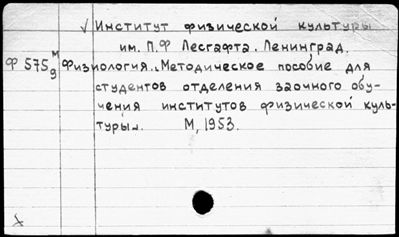 √ Институт физической культуры
им. П.Ф Лесгафта. Ленинград.
Ф 575 м/9 Физиология. Методическое пособие для
студентов отделения заочного обу-
чения институтов физической куль-
туры. М, 1953.